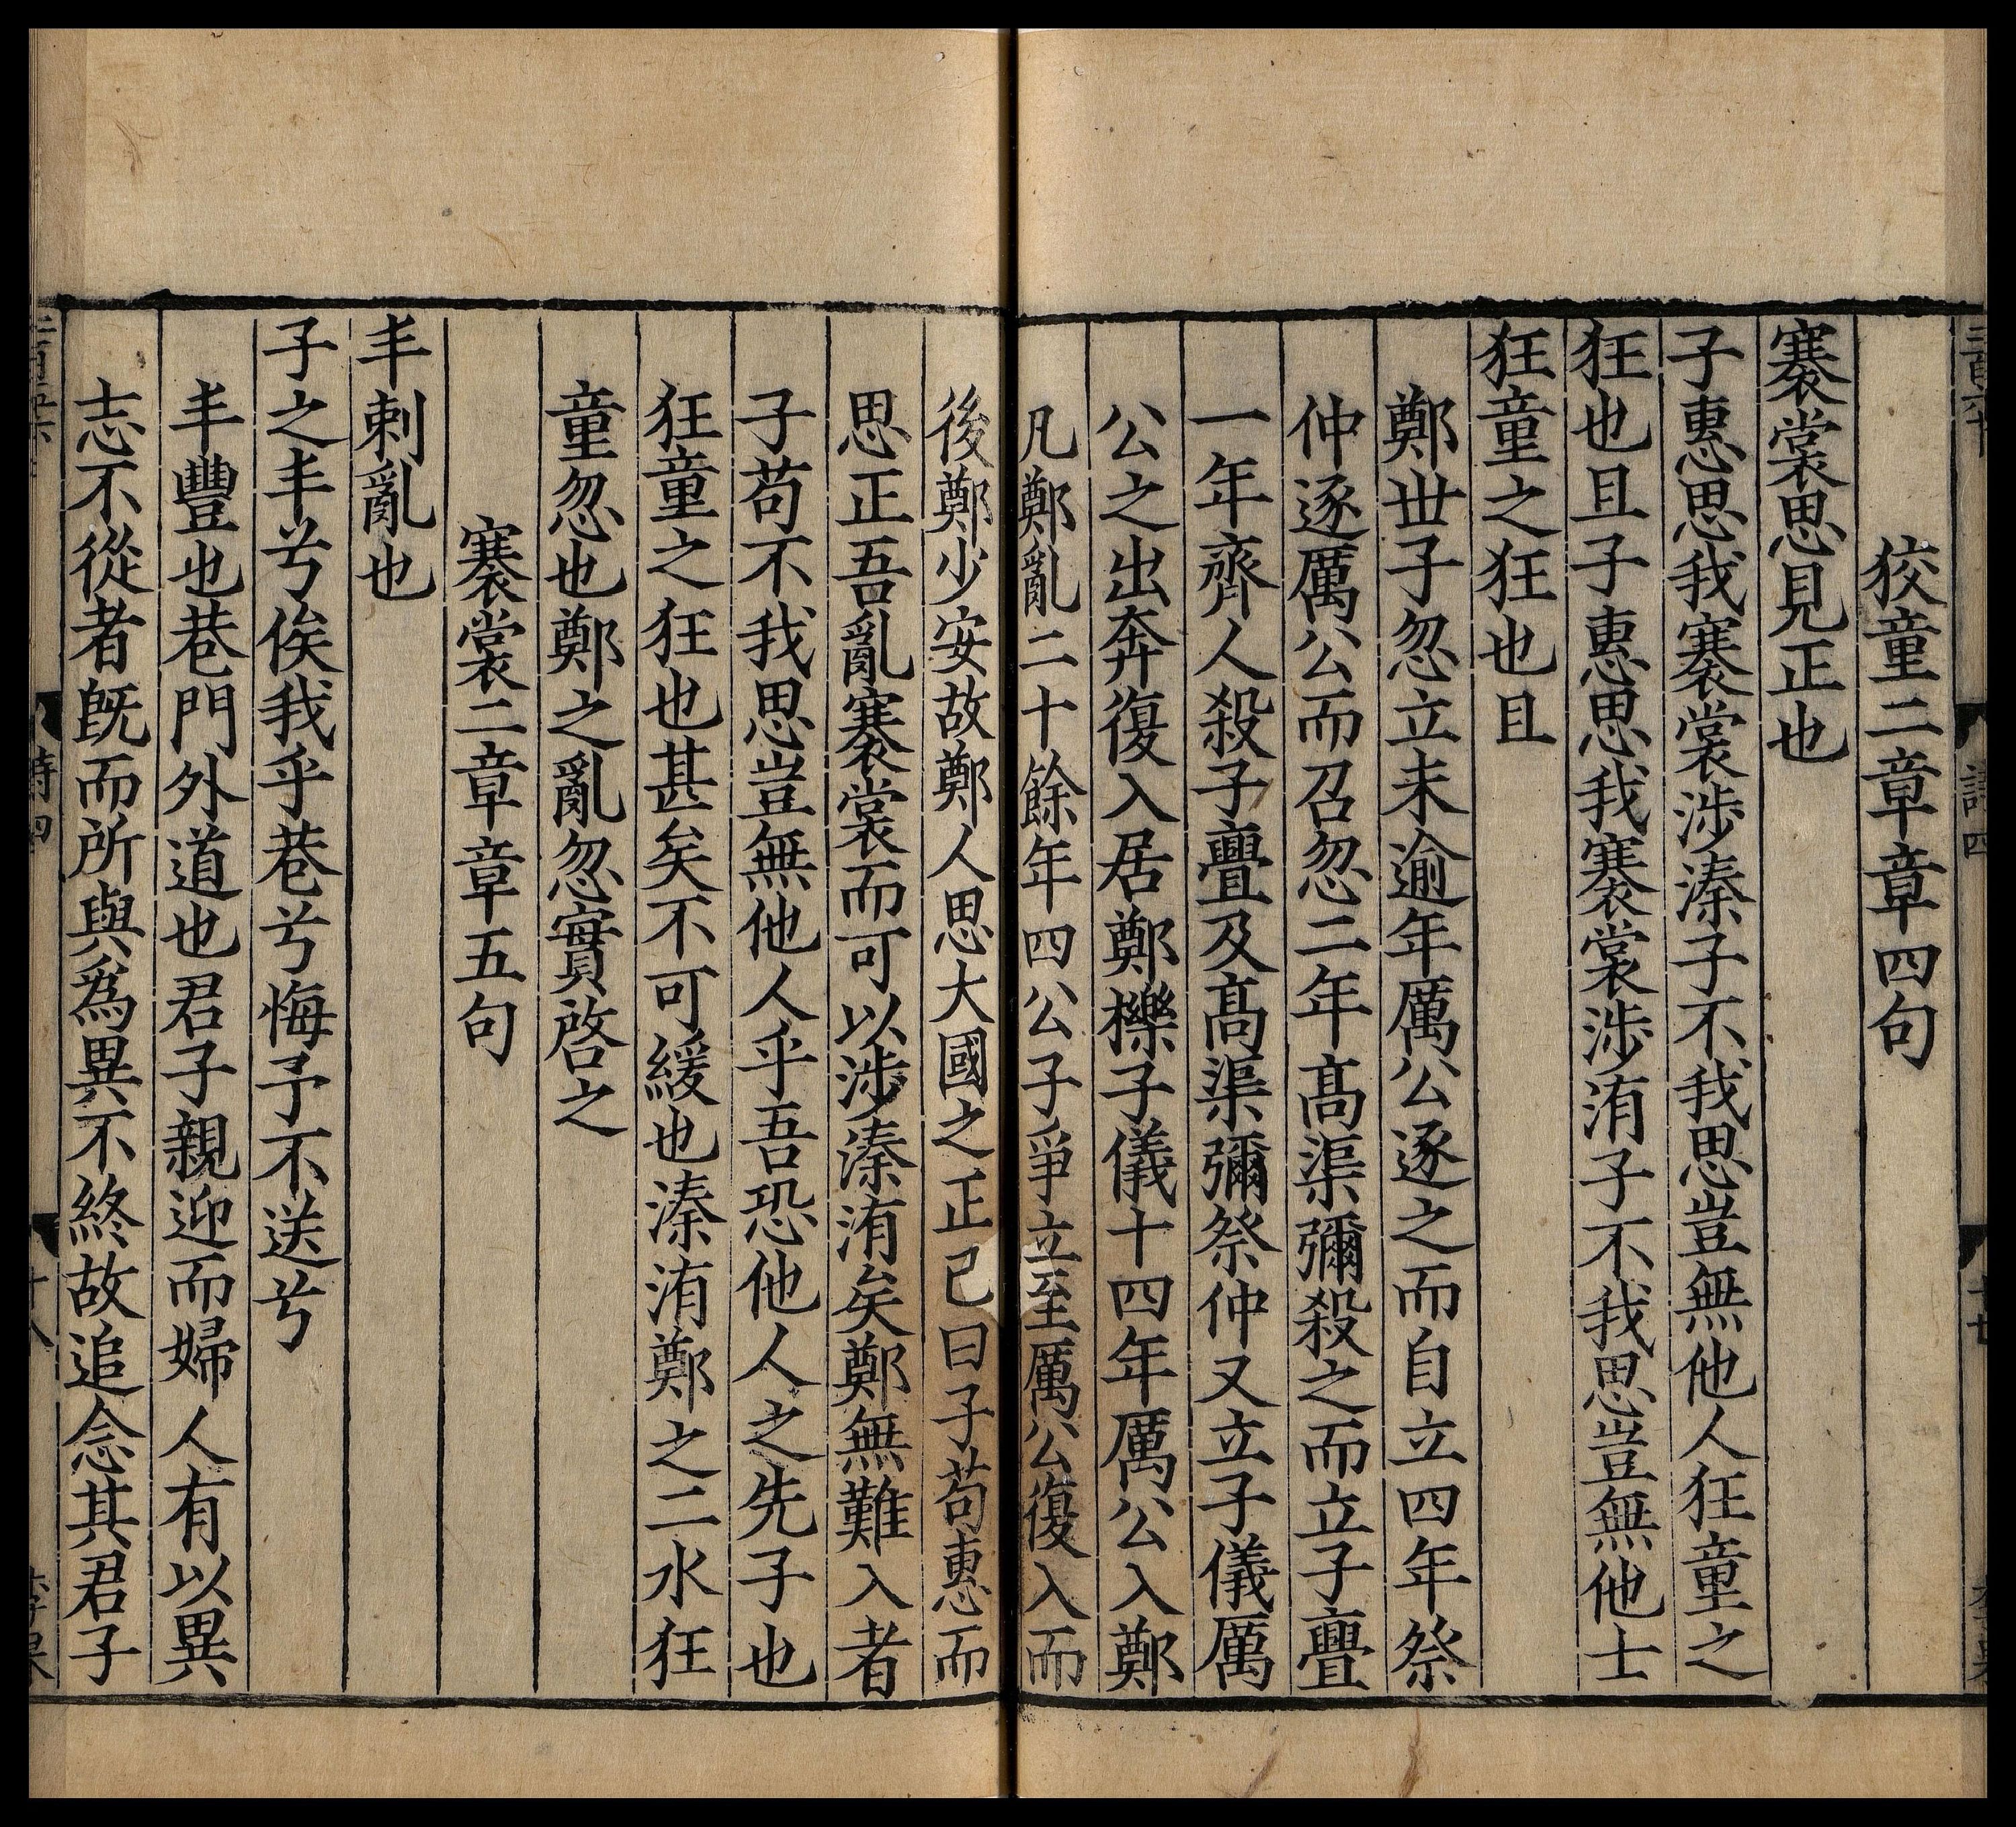 狡童二章章四句
褰裳思見正也
子惠思我褰裳涉溱子不我思豈無他人狂童之
狂也且子惠思我褰裳涉洧子不我思豈無他士
狂童之狂也且
鄭世子忽立未逾年厲公逐之而自立四年祭
仲逐厲公而召忽二年髙渠彌殺之而立子亹
一年齊人殺子亹及髙渠彌祭仲又立子儀厲
公之出奔復入居鄭櫟子儀十四年厲公入鄭
凡鄭亂二十餘年四公子爭立至厲公復入而
後鄭少安故鄭人思大國之正己曰子苟惠而
思正吾亂褰裳而可以涉溱洧矣鄭無難入者
子苟不我思豈無他人乎吾恐他人之先子也
狂童之狂也甚矣不可緩也溱洧鄭之二水狂
童忽也鄭之亂忽實啓之
褰裳二章章五句
丰刺亂也
子之丰兮俟我乎巷兮悔予不送兮
丰豐也巷門外道也君子親迎而婦人有以異
志不從者旣而所與爲異不終故追念其君子